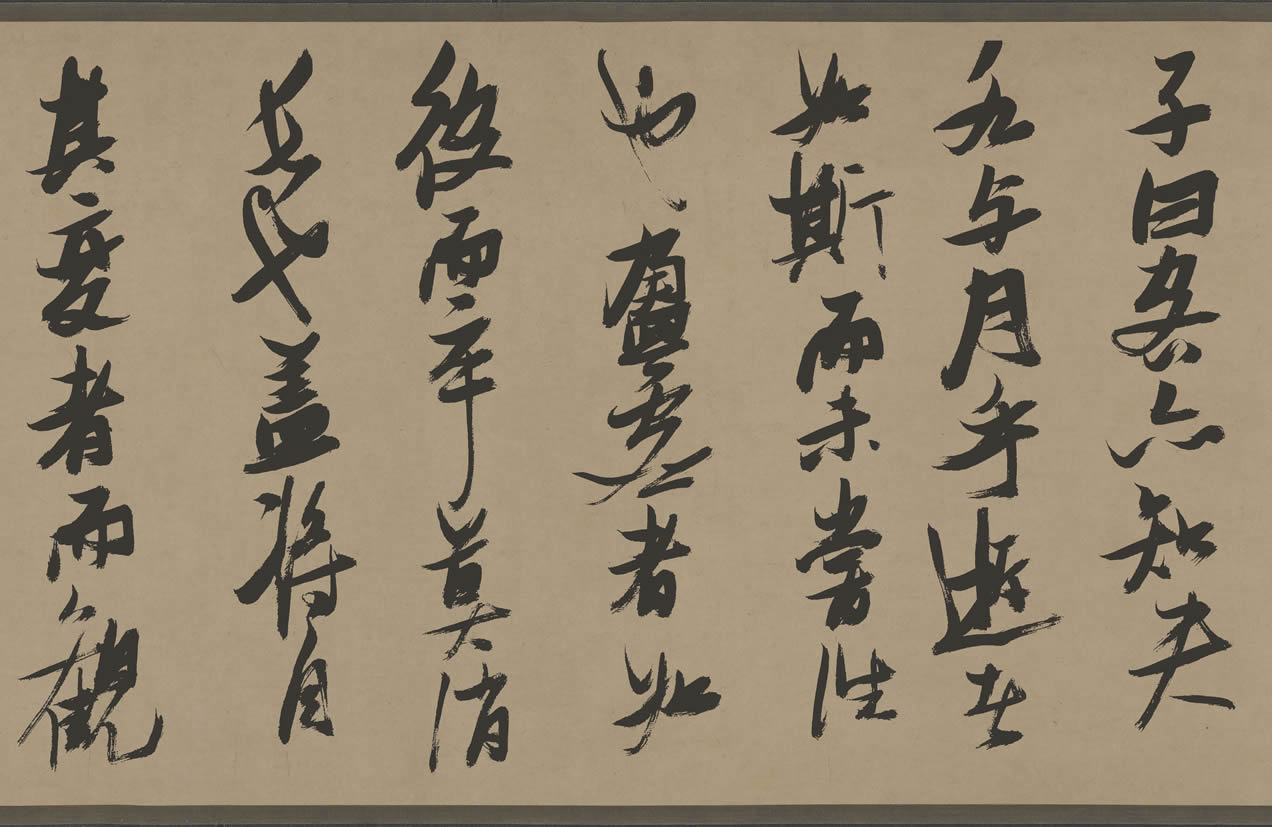 子曰客亦知夫
水与月乎逝者
如斯而未嘗往
也盈虛者如
彼而卒莫消
長也盖将自
其變者而觀